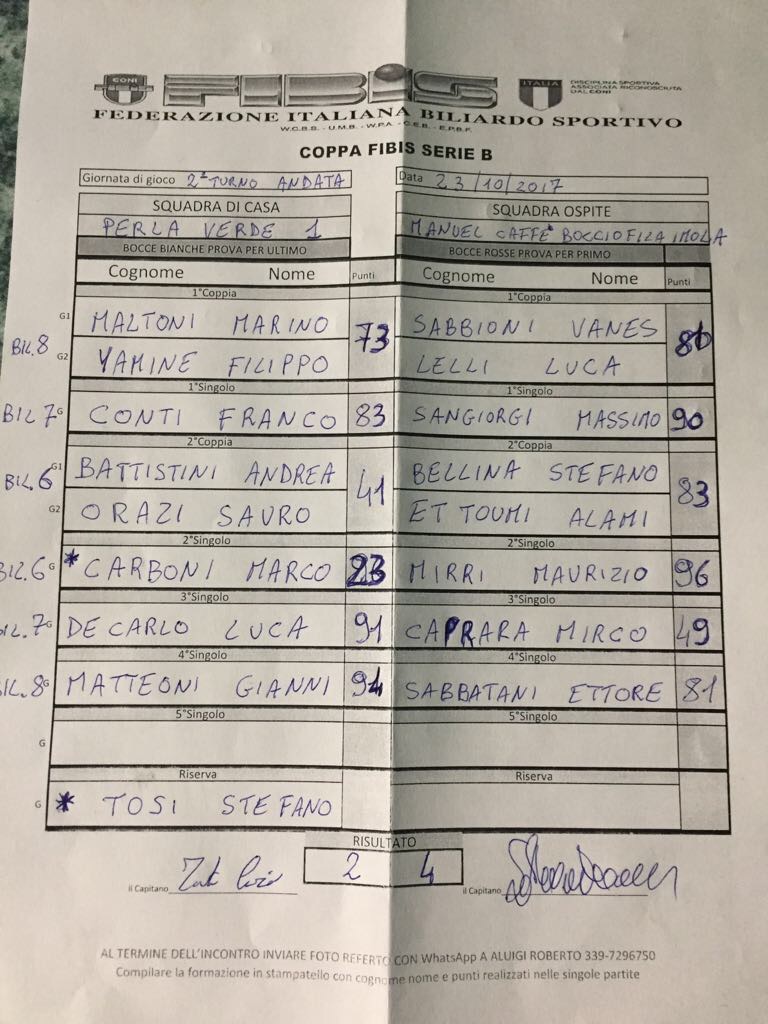 CONI FIBiS ITALIA DISCIPLINA SPORTIVA
ASSOCIATA RICONOSCIUTA
DAL CONI
FEDERAZIONE ITALIANA BILIARDO SPORTIVO
W.C.B.S. - U.M.B. - W.P.A. - C.E.B. - E.P.B.F.
COPPA FIBIS SERIE B
Giornata di gioco 2° TURNO ANDATA Data 23/10/2017
SQUADRA DI CASA SQUADRA OSPITE
PERLA VERDE 1 MANUEL CAFFE' BOCCIOFILA IMOLA
BOCCE BIANCHE PROVA PER ULTIMO BOCCE ROSSE PROVA PER PRIMO
Cognome Nome Punti Cognome Nome Punti
1°Coppia 1°Coppia
G1 MALTONI MARINO SABBIONI VANES
BIL.8 73
G2 YAMINE FILIPPO LELLI LUCA
1°Singolo 1°Singolo
BIL 7 G CONTI FRANCO 83 SANGIORGI MASSIMO 90
2°Coppia 2°Coppia
G1 BATTISTINI ANDREA BELLINA STEFANO
BIL.6 41 83
G2 ORAZI SAURO ET TOUMI ALAMI
2°Singolo 2°Singolo
BIL.6 G * CARBONI MARCO 23 MIRRI MAURIZIO 96
3°Singolo 3°Singolo
BIL.7 G DE CARLO LUCA 91 CAPRARA MIRCO 49
4°Singolo 4°Singolo
BIL.8 G MATTEONI GIANNI 94 SABBATANI ETTORE 81
5°Singolo 5°Singolo
G
Riserva Riserva
G * TOSI STEFANO
RISULTATO
il Capitano 2 4 il Capitano
AL TERMINE DELL'INCONTRO INVIARE FOTO REFERTO CON WhatsApp A ALUIGI ROBERTO 339-7296750
Compilare la formazione in stampatello con cognome nome e punti realizzati nelle singole partite